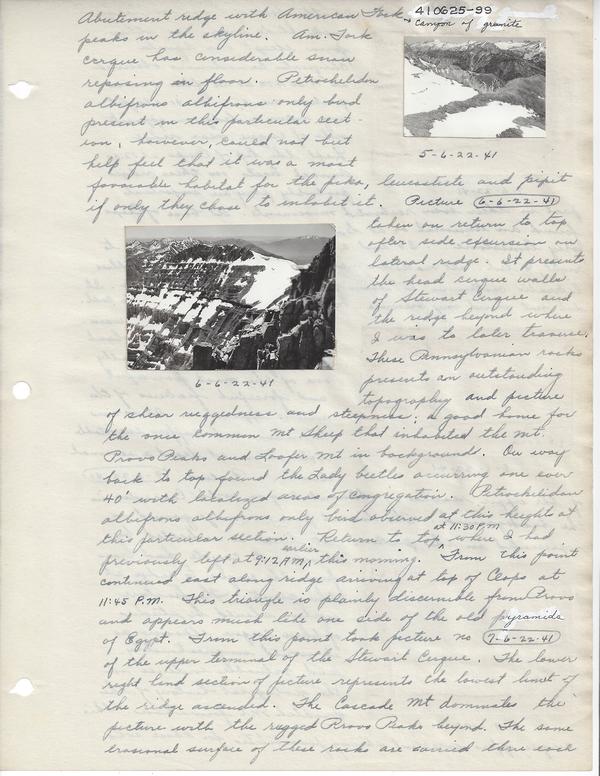 Abutement ridge with American Fork
410625-99
peaks in the skyline. Am. Fork
Canyon of granite
cirque has considerable snow
reposing in floor. Petrochelidon
albifrons albifrons only bird
present in this particular sect-
ion, however, could not but
5-6-22-41
help feel that it was a most
favorable habitat for the pika, leucosticte and pipit
if only they chose to inhabit it. Picture 6-6-22-41
taken on return to top
after side excursion on
lateral ridge. It presents
the head cirque walls
of Stewart Cirque and
the ridge beyond where
I was to later traverse.
These Pennsylvanian rocks
presents an outstanding
6-6-22-41
topography and picture
of shear ruggedness and steepness; a good home for
the once common Mt Sheep that inhabited the Mt.
Provo Peaks and Loafer Mt in background. On way
back to top found the Lady beetles occurring one ever
40' with localized areas of congregation. Petrochelidon
albifrons albifrons only bird observed at this height at
this particular section. Return to top where I had
at 11:30 P.M
previously left at 9:12 A.M. earlier this morning. From this point
continued east along ridge arriving at top of Cleops at
11:45 P.M. This triangle is plainly discernible from Provo
and appears much like one side of the old pyramids
of Egypt. From this point took picture no 7-6-22-41
of the upper terminal of the Stewart Cirque. The lower
right hand section of picture represents the lowest limit of
the ridge ascended. The Cascade Mt dominates the
picture with the rugged Provo Peaks beyond. The same
erosional surface of these rocks are carried thru each